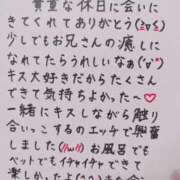 貴重な休日に会いに
きてくれてありがとう(≧▽≦)
少しでもお兄さんの癒しに
なれてたらうれしいなぁ(′▽`)
キス大好きだからたくさん
できて気持ちよかった〜♡
一緒にキスしながら触り
合いっこするのエッチで興奮
しました(//ω//) お風呂でも
ベットでもイチャイチャできて